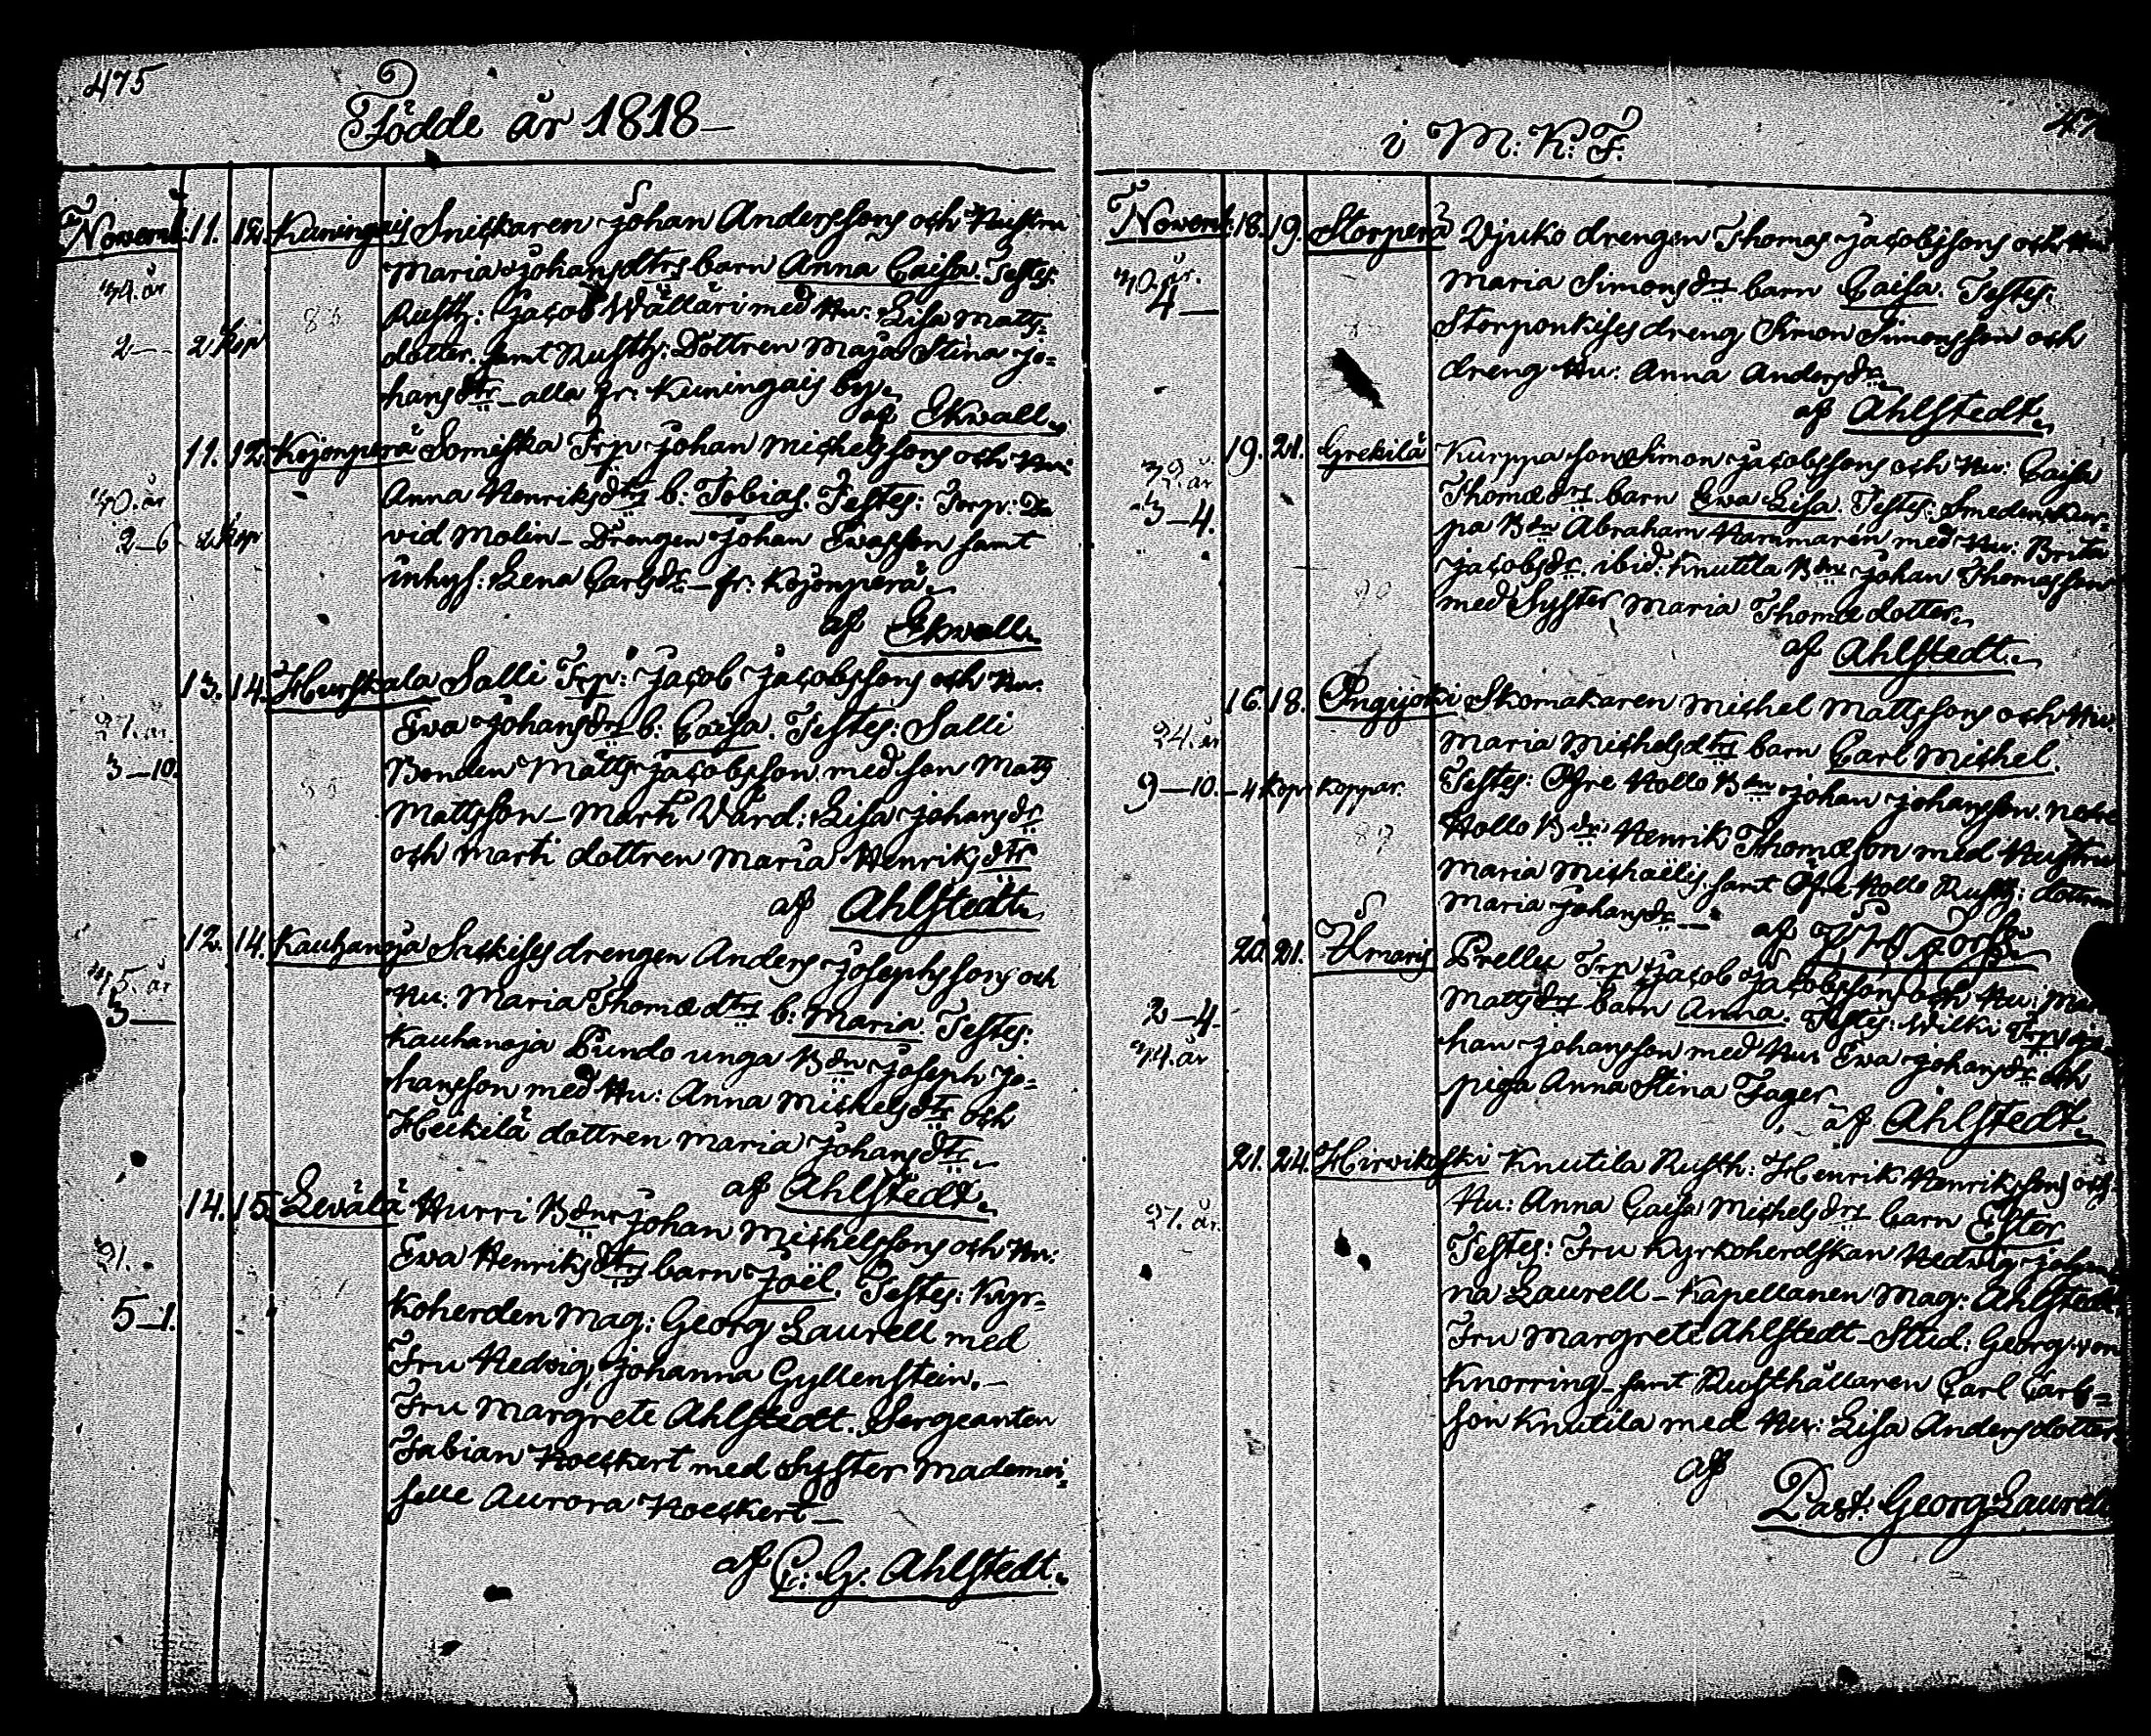 475
Födde år 1818
Novemb: 11. 12. Kuningais Snickaren Johan Anderssons och Hustru
Maria Johansdtrs barn Anna Caisa. Testes:
34. år
Rusth: Jacob Wälläri med Hu: Lisa Matts-
2 — 2 Kop
dotter. samt Rusth: Dottren Maja Stina Jo-
hansdtr – alla fr: Kuningais by
af Ekwall
11. 12. Kojonperä Somiska Trp: Johan Michelssons och Hu:
40. år
Anna Henriksdtrs b: Tobias. Testes: Torp: Da
2–6 2 Kop
vid Molin – Drengen Johan Ewasson samt
inhys: Lena Carlsdr – fr: Kojonperä
af Ekwall
13. 14. Hurskala Salli Trp: Jacob Jacobssons och Hu:
27. år.
Ewa Johansdrs b: Caisa. Testes: Salli
3–10.
Bonden Matts Jacobsson med son Matts
Mattsson – Marti Värd: Lisa Johansdr
och Marti dottren Maria Henriksdtr
af Ahlstedt
12. 14. Kauhanoja Sackises drengen Anders Josephssons och
45. år
Hu: Maria Thomædtrs b: Maria. Testes:
3 —
Kauhanoja Pundo unga Bdn Joseph Jo-
hansson med Hu: Anna Michelsdtr och
Heikilä dottren Maria Johansdtr
af Ahlstedt.
14. 15. Lewälä Hurri Bdns Johan Michelssons och Hu:
31.
Ewa Henriksdtrs barn Joël. Testes: Kyr-
5–1.
koherden Mag: Georg Laurell med
Fru Hedvig Johanna Gyllenstein. –
Fru Margrete Ahlstedt. Sergeanten
Fabian Hoeckert med Syster Mademoi-
selle Aurora Hoeckert –
af C: G: Ahlstedt.
i M: K: F.
47
Novemb: 18. 19. Storperä Ujuko drengen Thomas Jacobssons och Hu
30. år.
Maria Simonsdrs barn Caisa. Testes:
4 —
Storponkises dreng Simon Simonsson och
dreng Hu: Anna Andersdr
af Ahlstedt.
19. 21. Grekilä Kurppa son Simon Jacobssons och Hu: Caisa
32. år
Thomædrs barn Ewa Lisa. Testes: Smeden Kur-
3–4.
pa Bdn Abraham Hammarén med Hu: Brita
Jacobsdr. ibid: Knutila Bdn Johan Thomasson
med Syster Maria Thomædotter
af Ahlstedt.
16. 18. Pngijoki Skomakaren Michel Mattssons och Hu.
24. år
Maria Michelsdtrs barn Carl Michel.
9–10. – 4 Kop: Koppar.
Testes: Öfre Hollo Bdn Johan Johansson. Nedre
Hollo Bdn Henrik Thomæson med Hustru
Maria Michaëlis, samt Öfre Hollo Rusth: dottren
Maria Johansdr —
af
20. 21. Ilmaris Prellu Trp: Jacob Jacobssons och Hu: Mar
2–4.
Mattsdrs barn Anna. Testes: Wilki Trp: Jo-
34. år
han Johansson med Hu: Ewa Johansdr och
piga Anna Stina Fager
af Ahlstedt
21. 24. Hirvikoski Knutila Rusth: Henrik Henrikssons och
27. år.
Hu: Anna Caisa Michelsdrs barn Ester
Testes: Fru Kyrkoherdskan Hedvig Johan
na Laurell – Kapellanen Mag: Ahlstedt
Fru Margrete Ahlstedt – Stud: Georg von
Knorring – samt Rusthållaren Carl Carls-
son Knutila med Hu: Lisa Andersdotter
af
Past: Georg Laurell